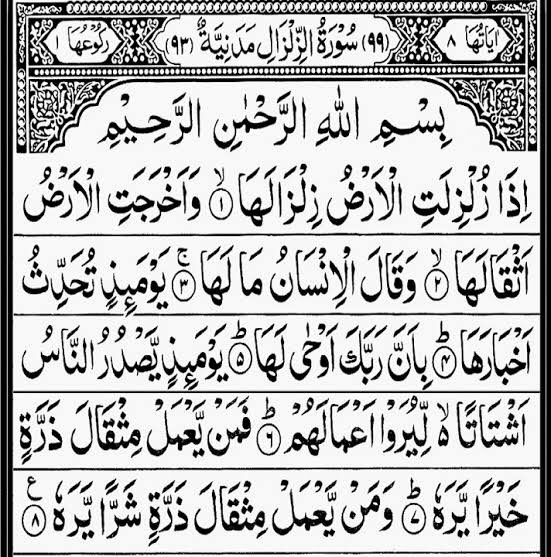 اٰیَاتُهَا ۸ (۹۹) سُوْرَةُ الزِّلْزَالِ مَدَنِيَّةٌ (۹۳) رُكُوْعُهَا ۱
بِسْمِ اللّٰهِ الرَّحْمٰنِ الرَّحِيْمِ
اِذَا زُلْزِلَتِ الْاَرْضُ زِلْزَالَهَا ۙ۱ وَاَخْرَجَتِ الْاَرْضُ
اَثْقَالَهَا ۙ۲ وَقَالَ الْاِنْسَانُ مَا لَهَا ۚ۳ يَوْمَىِٕذٍ تُحَدِّثُ
اَخْبَارَهَا ؕ۴ بِاَنَّ رَبَّكَ اَوْحٰى لَهَا ؕ۵ يَوْمَىِٕذٍ يَّصْدُرُ النَّاسُ
اَشْتَاتًا ۙ۬ لِّيُرَوْا اَعْمَالَهُمْ ؕ۶ فَمَنْ يَّعْمَلْ مِثْقَالَ ذَرَّةٍ
خَيْرًا يَّرَهٗ ؕ۷ وَمَنْ يَّعْمَلْ مِثْقَالَ ذَرَّةٍ شَرًّا يَّرَهٗ ۸ ع